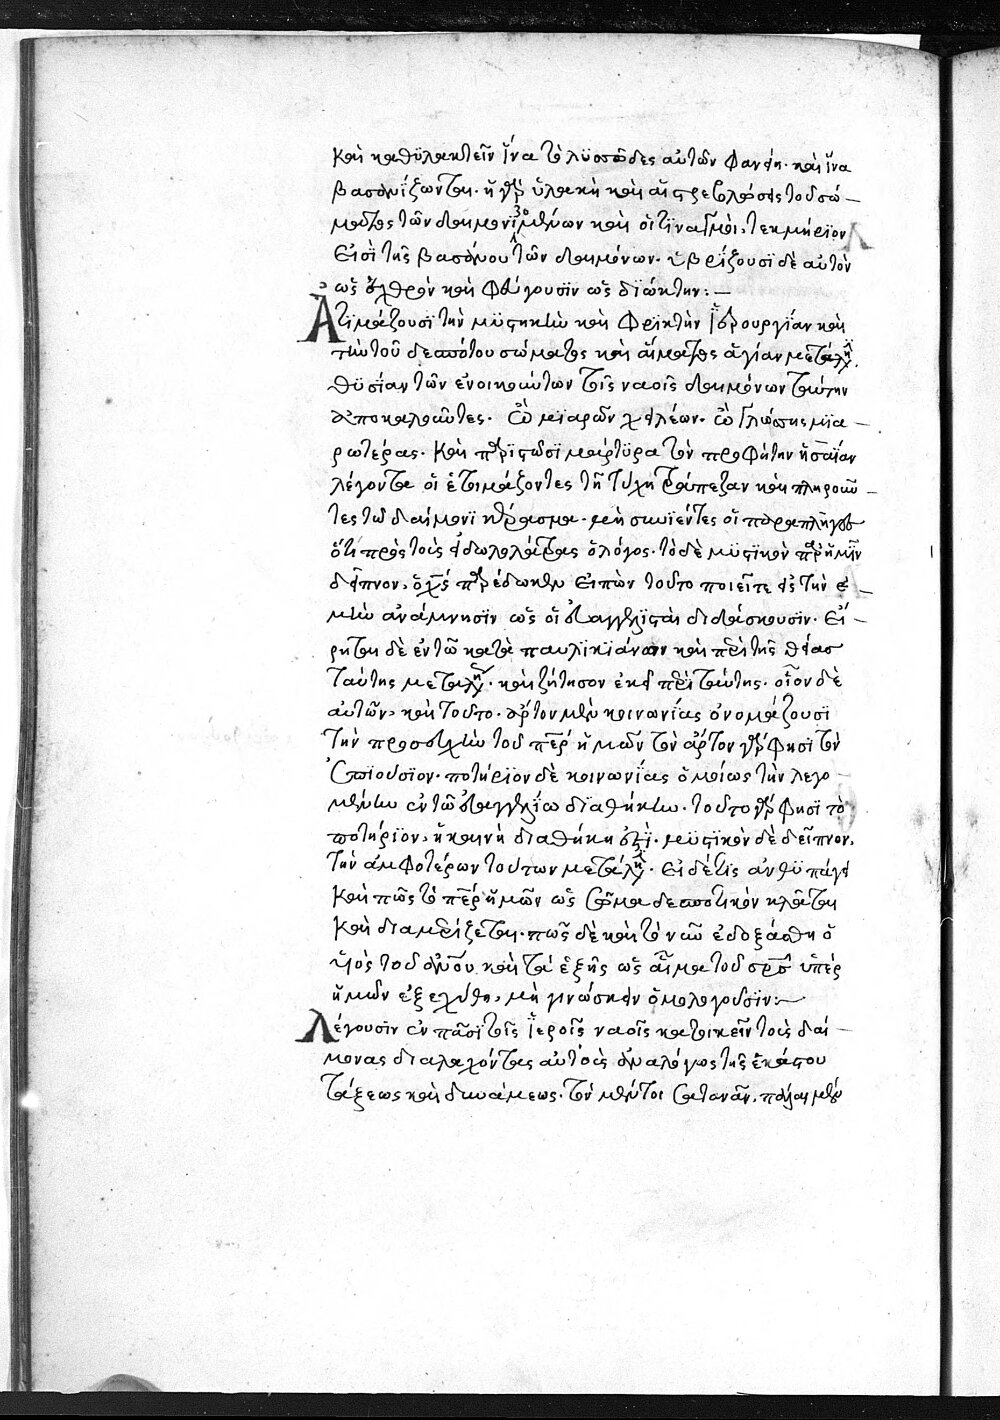 καὶ καθϋλακτεῖν ἵνα τὸ λυσσῶδες αὐτῶν φανῇ. καὶ ἵνα
βασανίζωνται. ἡ γὰρ ὑλακὴ καὶ αἱ στρεβλώσεις τοῦ σώ–
ματος τῶν δαιμονιζομένων καὶ οἱ τιναγμοὶ, τεκμήριον
εἰσὶ τῆς βασάνου τῶν δαιμόνων. ὑβρίζουσι δὲ αὐτὸν
ὡς ἐχθρὸν καὶ φεύγουσιν ὡς διώκτην:–
Ἀτιμάζουσι τὴν μυστικὴν καὶ φρικτὴν ἱερουργίαν καὶ
τὴν τοῦ δεσπότου σώματος καὶ αἵματος ἁγίαν μετάλη.
θυσίαν τῶν ἐνοικούντων τοῖς ναοῖς δαιμόνων ταύτην
ἀποκαλοῦντες. ὢ μιαρῶν χειλέων. ὢ γλώσσης μια–
ρωτέρας. καὶ περιϊστῶσι μάρτυρα τὸν προφήτην ἡσαΐαν
λέγοντα οἱ ἑτοιμάζοντες τῇ τύχῃ τράπεζαν καὶ πληροῦν–
τες τῷ δαίμονι κέρασμα. μὴ συνιέντες οἱ παραπλῆγες
ὅτι πρὸς τοὺς εἰδωλολάτρας ὁ λόγος. τὸ δὲ μυστικὸν παρ' ἡμῖν
δεῖπνον, ὁ χς παρέδωκεν εἰπὼν τοῦτο ποιεῖτε εἰς τὴν ἐ–
μὴν ἀνάμνησιν ὡς οἱ εὐαγγελισταὶ διδάσκουσιν. εἴ–
ρηται δὲ ἐν τῷ κατὰ παυλικιάνων καὶ περὶ τῆς θείας
ταύτης μεταλή. καὶ ζήτησον ἐκεῖ περὶ ταύτης. οἷον δὲ
αὐτῶν, καὶ τοῦτο. ἄρτον μὲν κοινωνίας ὀνομάζουσι
τὴν προσευχὴν τοῦ περ ἡμῶν τὸν ἄρτον γὰρ φησὶ τὸν
ἐπιούσιον. ποτήριον δὲ κοινωνίας ὁμοίως τὴν λεγο–
μένην ἐν τῷ εὐαγγελίῳ διαθήκην. τοῦτο γὰρ φησὶ τὸ
ποτήριον, ἡ καινὴ διαθήκη ἐστὶ. μυστικὸν δὲ δεῖπνον,
τὴν ἀμφοτέρων τούτων μετάλη. εἰ δέ τις ἀνθυπάγει
καὶ πῶς τὸ περ ἡμῶν ὡς σῶμα δεσποτικὸν κλᾶται
καὶ διαμερίζεται. πῶς δὲ καὶ τὸ νῦν ἐδοξάσθη ὁ
υἱὸς τοῦ ἀνου καὶ τὰ ἑξῆς ὡς αἷμα τοῦ σρς ὑπὲρ
ἡμῶν ἐξεχύθη, μὴ γινώσκειν ὁμολογοῦσιν:–
Λέγουσιν ἐν πᾶσι τοῖς ἱεροῖς ναοῖς κατοικεῖν τοὺς δαί–
μονας διαλαχόντας αὐτοὺς ἀναλόγως τῆς ἑκάστου
τάξεως καὶ δυνάμεως. τὸν μέντοι σατανᾶν, πάλαι μὲν